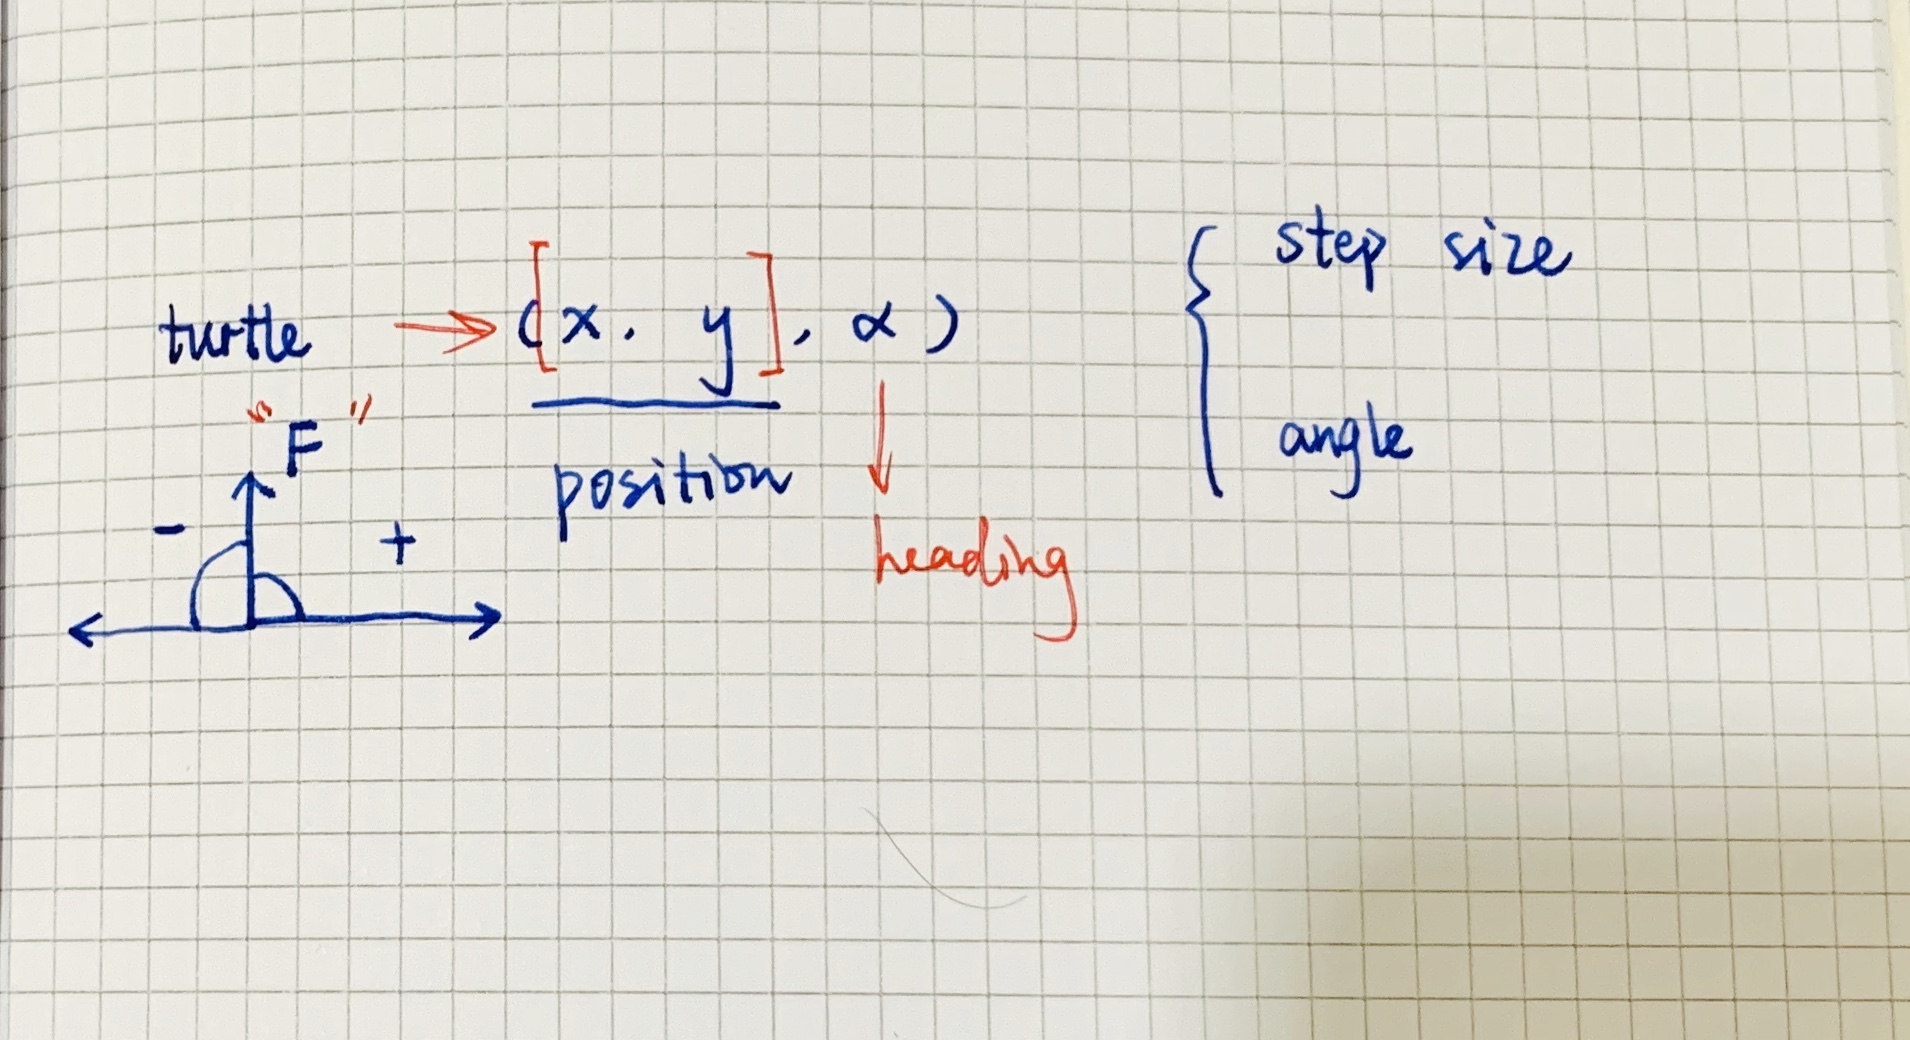 turtle → ([x. y], α)
position
heading
"F"
- +
{ step size
angle